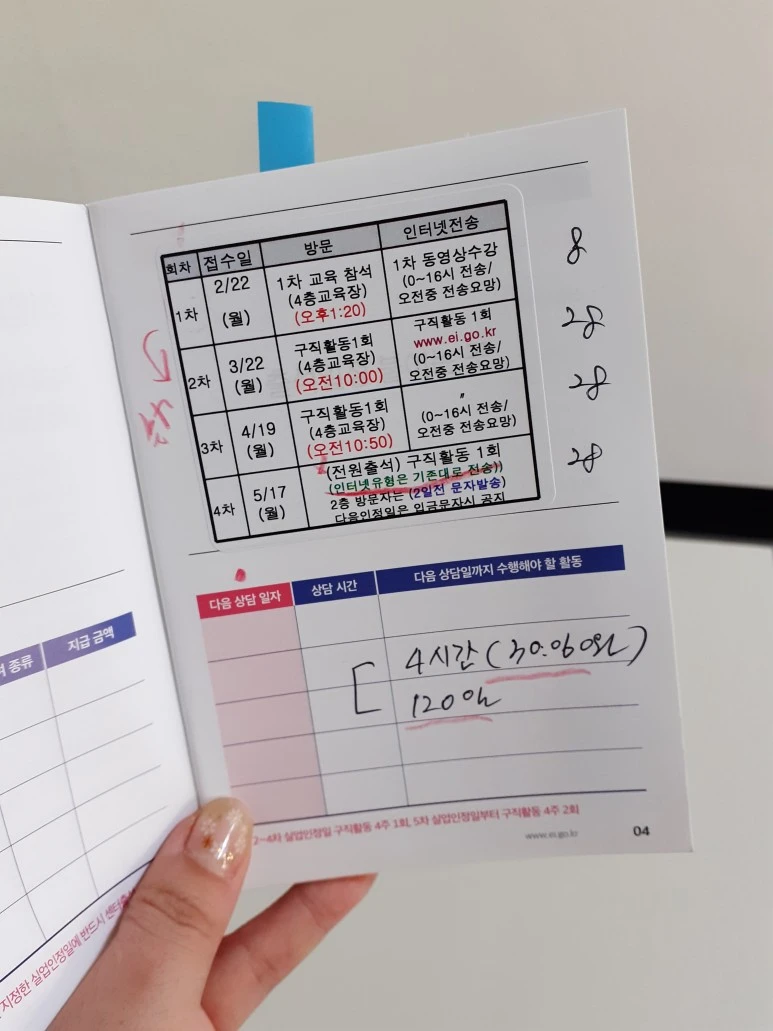 회차 접수일 방문 인터넷전송
1차 2/22 (월) 1차 교육 참석 (4층교육장) (오후1:20) 1차 동영상수강 (0~16시 전송/ 오전중 전송요망) 8
2차 3/22 (월) 구직활동1회 (4층교육장) (오전10:00) 구직활동 1회 www.ei.go.kr (0~16시 전송/ 오전중 전송요망) 28
3차 4/19 (월) 구직활동1회 (4층교육장) (오전10:50) 〃 (0~16시 전송/ 오전중 전송요망) 28
4차 5/17 (월) (전원출석) 구직활동 1회 28
(인터넷유형은 기존대로 전송))
2층 방문자는 (2일전 문자발송)
다음인정일은 입금문자시 공지
다음 상담 일자 상담 시간 다음 상담일까지 수행해야 할 활동
4시간 (30.060원)
120일
2~4차 실업인정일 구직활동 4주 1회, 5차 실업인정일부터 구직활동 4주 2회
www.ei.go.kr 04
종류 지급 금액
지정한 실업인정일에 반드시